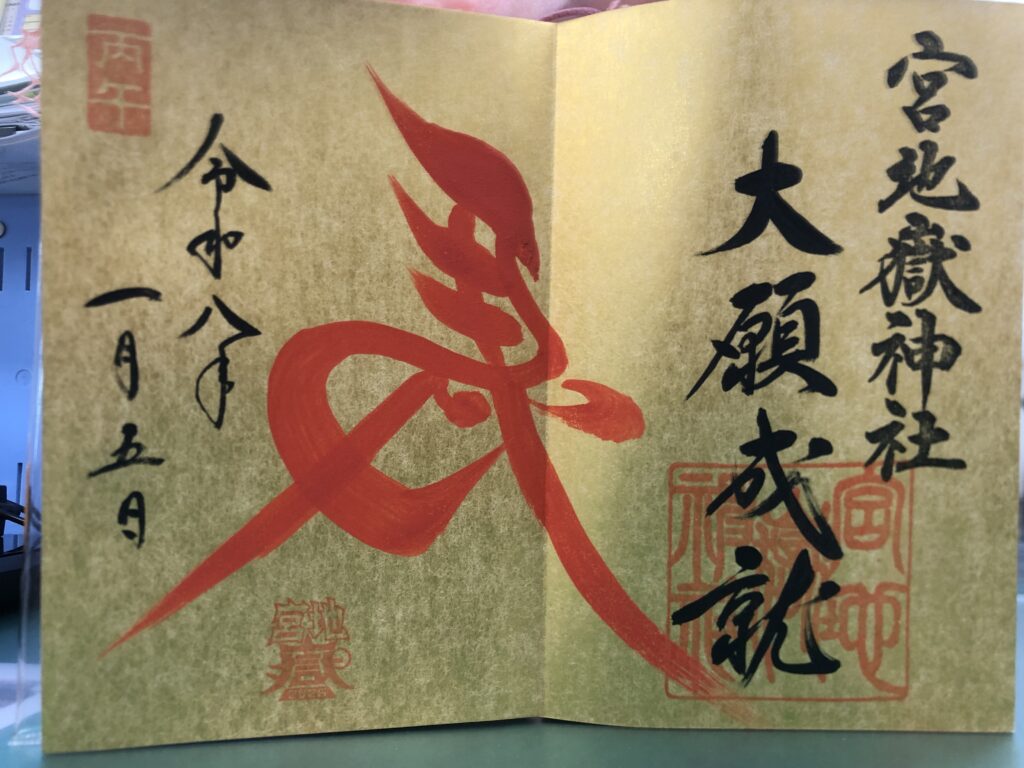 宮地嶽神社
大願成就
宮地嶽神社
令和八年
一月五日
丙午
宮地嶽